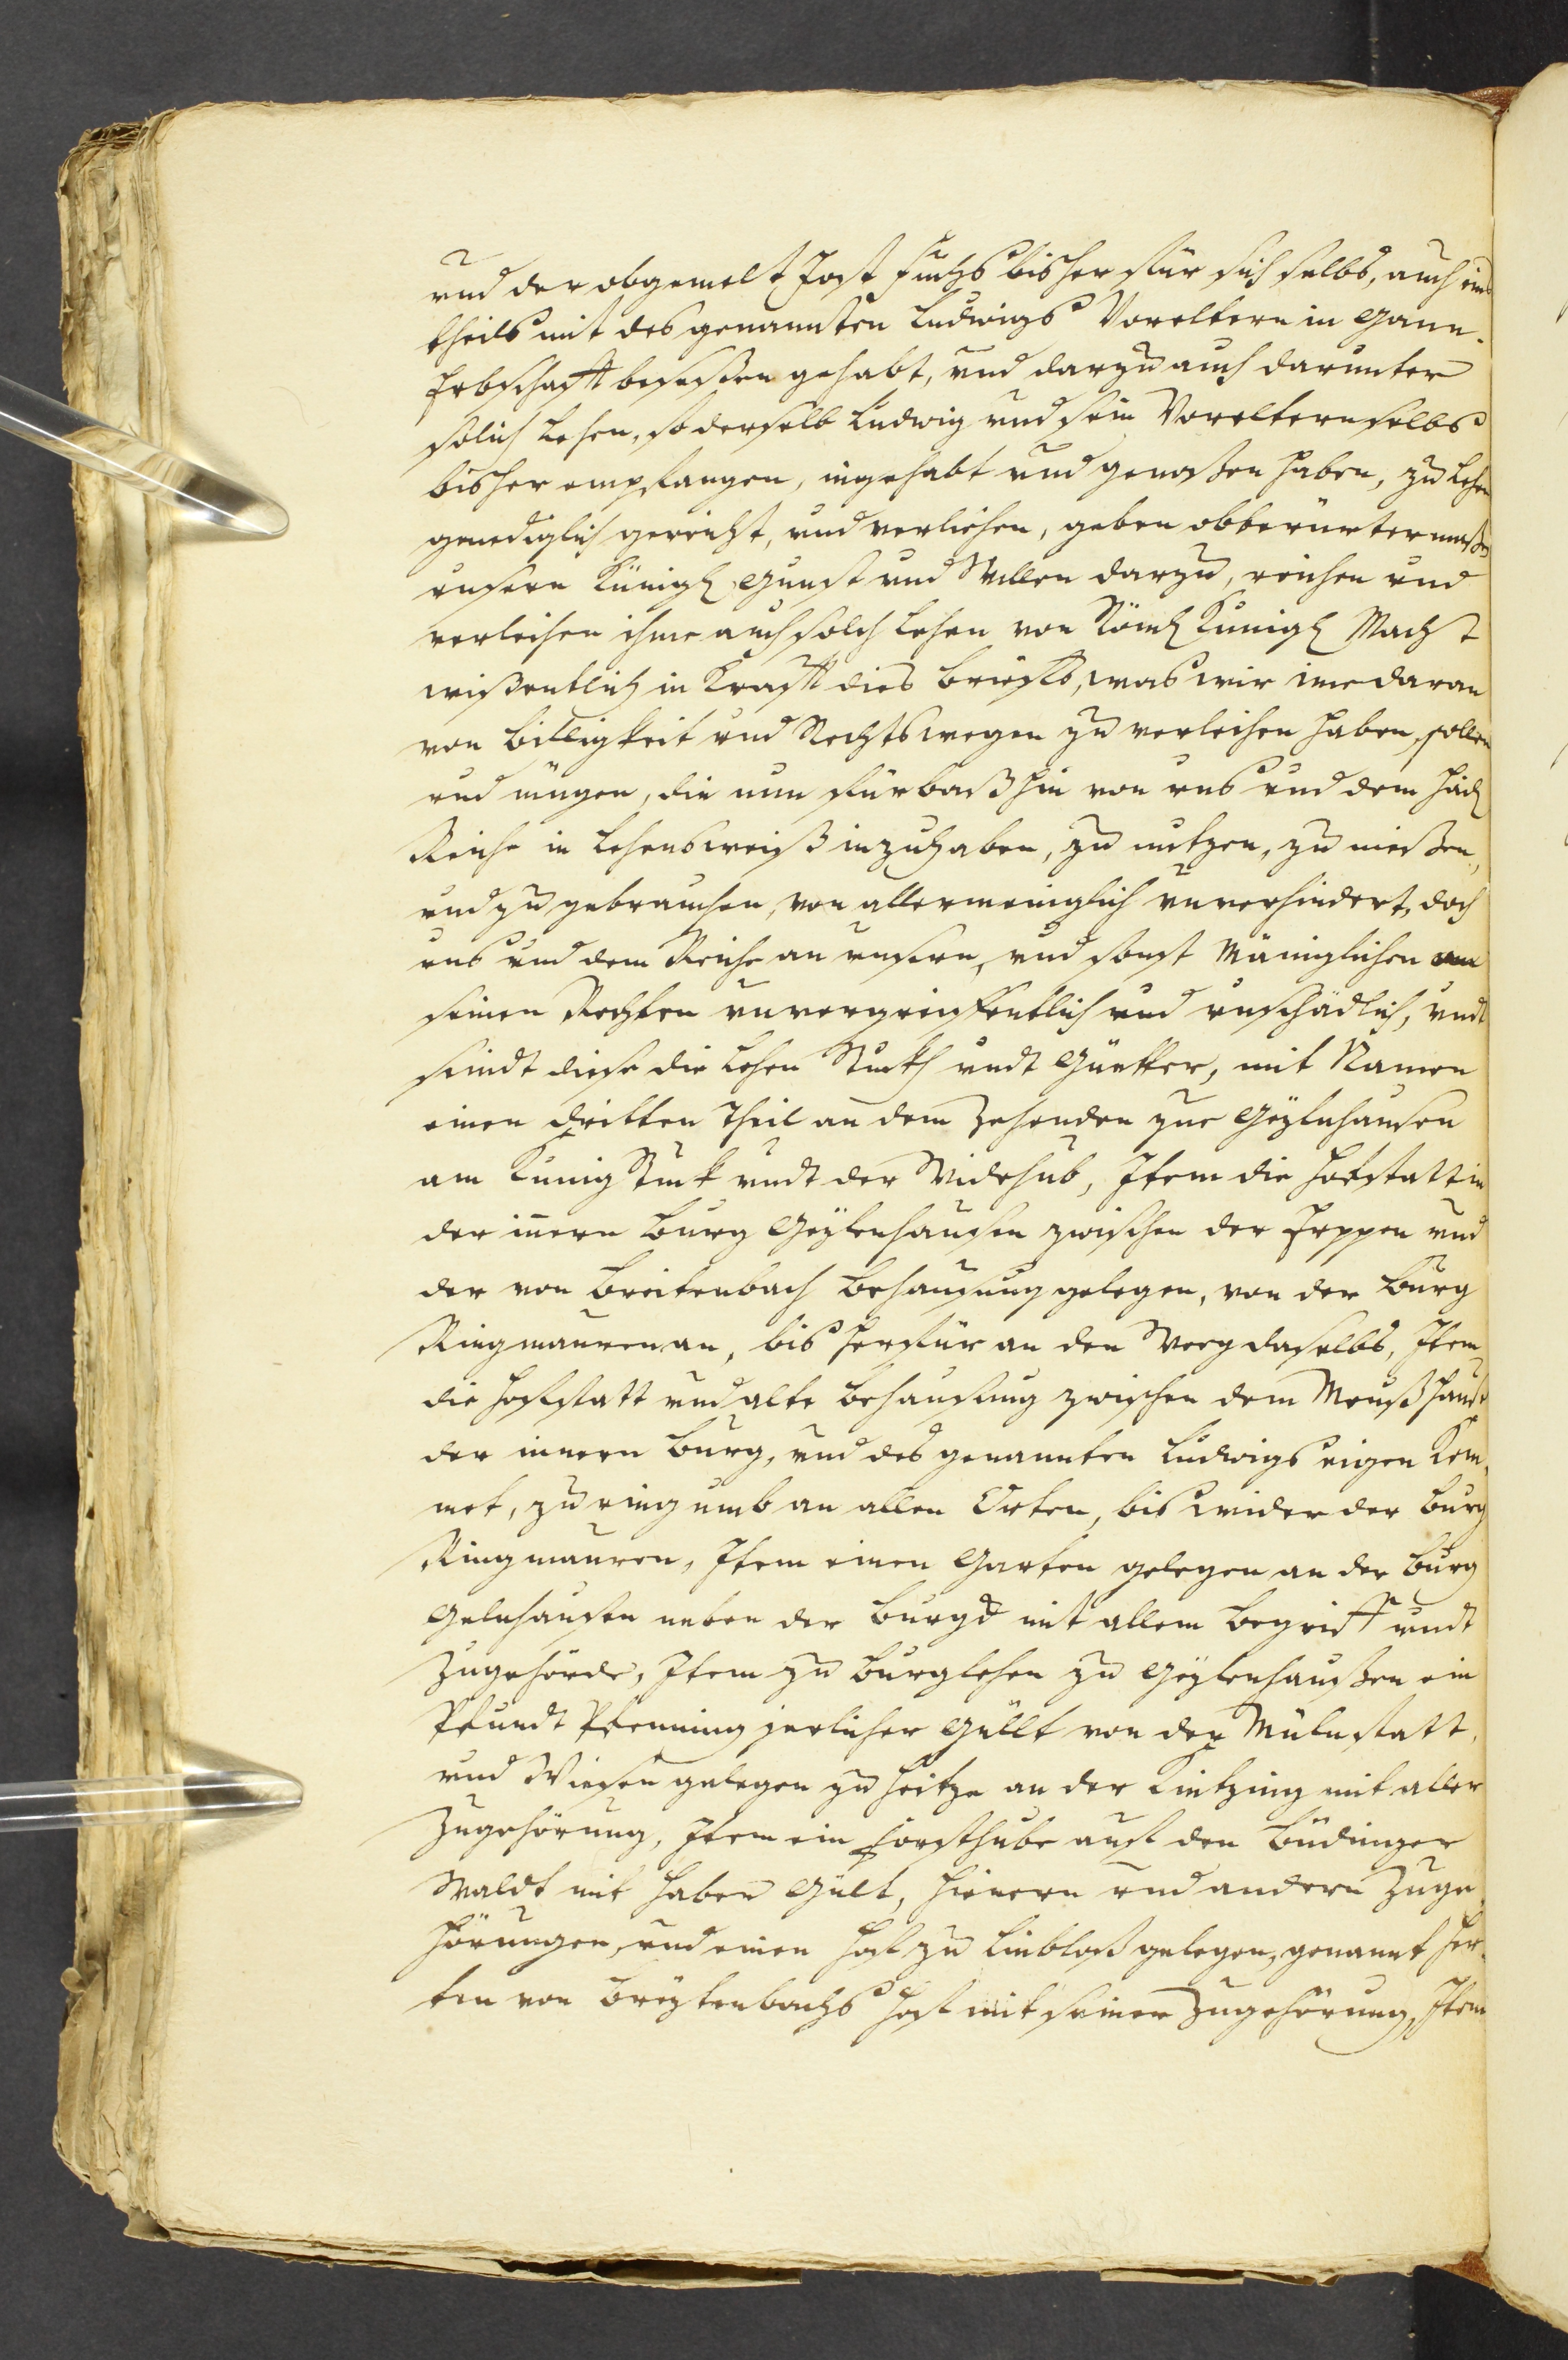 und der obgemelt Jost Fuchs bisher für sich selbs, auch eins
theils mit des genannten Ludwigs Voreltern in Gann-
Erbschafft beseßen gehabt, und darzu auch darunter
solich Lehen, so derselb Ludwig und sein Voreltern selbs
bisher empfangen, ingehabt und genoßen haben, zu Lehen
genediglich gereicht, und verliehen, geben obberürter maßen
unsern Künigl Gunst und Willen darzu, reichen und
verleihen ihme auch solch Lehen von Röml Künigl Macht
wißentlich in Krafft dies brieffs, was wir ime daran
von billigkeit und Rechtswegen zu verleihen haben, sollen
und mügen, die nun fürbaß hin von uns und dem Heil
Reiche in Lehensweiß inzuhaben, zu nutzen, zu nießen,
und zu gebrauchen, von allermeniglich unverhindert, doch
uns und dem Reiche an unsern, und sonst Mäniglichen an
seinen Rechten unvergreiffentlich und unschädlich, undt
seindt diese die Lehen Stuckh undt Güetter, mit Namen
einen dritten Theil an dem Zehenden zue Geylnhausen
am Künig Stuck undt der Widehub, Item die Hofstatt in
der innern Burg Geylenhausen zwischen der Forppen und
der von Breitenbach behausung gelegen, von der Burg
Ringmauren an, bis herfür an den Weeg daselbs, Item
die Hoffstatt und alte behausung zwischen dem Moußhauß
der innern Burg, und des genannten Ludwigs eigen Kem-
net, zu ring umb an allen Orten, bis wider der Burg
Ringmauren, Item einen Garten gelegen an der Burg
Gelnhausen neben der Burgd mit allem begriff undt
Zugehörde, Item zu Burglehen zu Geylenhaußen ein
Pfundt Pfenning jerlicher Güllt von der Mülnstatt,
und Wiesen gelegen zu Heitze an der Kintzing mit aller
Zugehörung, Item ein Forsthube auf den Büdinger
Waldt mit Haber Gült, Hünern und andern Zuge-
hörungen, und einen Hof zu Linbloß gelegen, genannt Her-
ten von Breytenbachs Hof mit seiner Zugehörung, Item